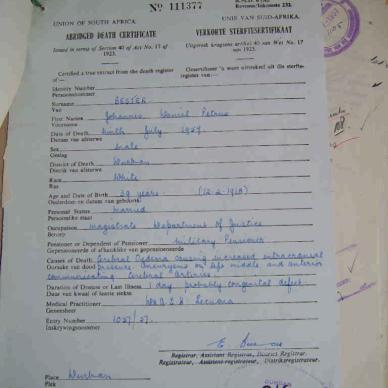 Nº 111377
Revenue/Inkomste 232.
UNION OF SOUTH AFRICA. UNIE VAN SUID-AFRIKA.
ABRIDGED DEATH CERTIFICATE VERKORTE STERFTESERTIFIKAAT
Issued in terms of Section 40 of Act No. 17 of 1923. Uitgereik kragtens artikel 40 van Wet No. 17 van 1923.
Certified a true extract from the death register of:— Gesertifiseer 'n ware uittreksel uit die sterfteregister van:—
Identity Number
Persoonsnommer
Surname BESTER
Van
First Names Johannes Daniel Petrus
Voorname
Date of Death Ninth July 1957
Datum van afsterwe
Sex Male
Geslag
District of Death Durban
Distrik van afsterwe
Race White
Ras
Age and Date of Birth 39 years (12-2-1918)
Ouderdom en datum van geboorte
Personal Status Married
Persoonlike staat
Occupation Magistrate Department of Justice
Beroep
Pensioner or Dependent of Pensioner Military Pensioner
Gepensioeneerde of afhanklike van gepensioeneerde
Causes of Death Cerebral Oedema causing increased intracranial
Oorsake van dood pressure. Aneurysms on left middle and anterior
communicating cerebral arteries.
Duration of Disease or Last Illness 1 day probably congenital defect
Duur van kwaal of laaste siekte
Medical Practitioner
Geneesheer
Entry Number 1027/57.
Inskrywingsnommer
Registrar, Assistant Registrar, District Registrar.
Registrateur, Assistent-registrateur, Distriksregistrateur.
Place Durban
Plek
DURBAN